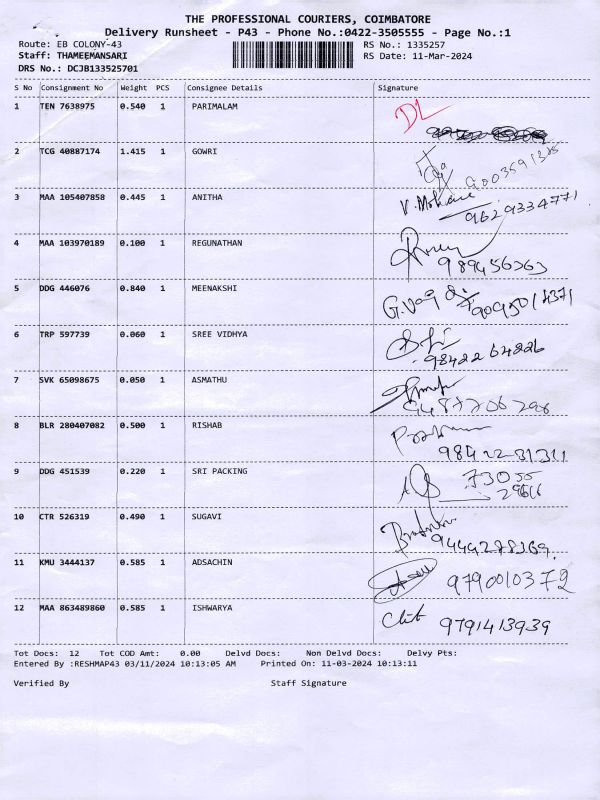 THE PROFESSIONAL COURIERS, COIMBATORE
Delivery Runsheet - P43 - Phone No.:0422-3505555 - Page No.:1
Route: EB COLONY-43 RS No.: 1335257
Staff: THAMEEMANSARI RS Date: 11-Mar-2024
DRS No.: DCJB133525701
S No Consignment No Weight PCS Consignee Details Signature
1 TEN 7638975 0.540 1 PARIMALAM DL
2 TCG 40887174 1.415 1 GOWRI
3 MAA 105407858 0.445 1 ANITHA V. 9629334771
4 MAA 103970189 0.100 1 REGUNATHAN 989456363
5 DDG 446076 0.840 1 MEENAKSHI
6 TRP 597739 0.060 1 SREE VIDHYA 98422 64826
7 SVK 65098675 0.050 1 ASMATHU
8 BLR 280407082 0.500 1 RISHAB
9 DDG 451539 0.220 1 SRI PACKING 73055
10 CTR 526319 0.490 1 SUGAVI
11 KMU 3444137 0.585 1 ADSACHIN 9790010372
12 MAA 863489860 0.585 1 ISHWARYA 9791413939
Tot Docs: 12 Tot COD Amt: 0.00 Delvd Docs: Non Delvd Docs: Delvy Pts:
Entered By :RESHMAP43 03/11/2024 10:13:05 AM Printed On: 11-03-2024 10:13:11
Verified By Staff Signature